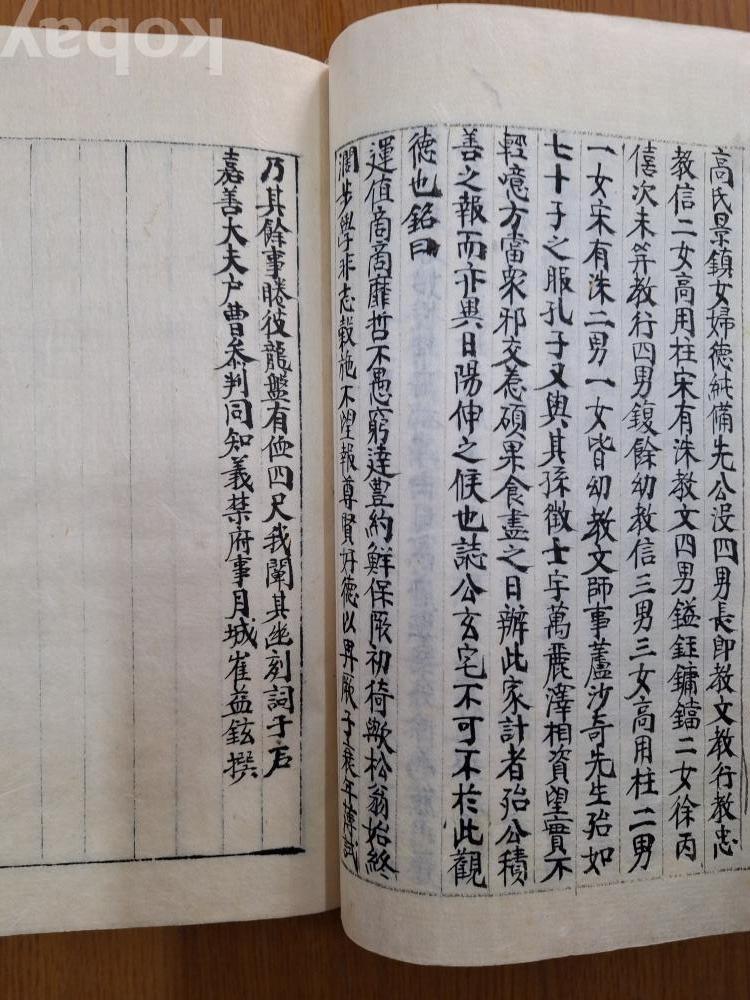 高氏景鎮女婦德純備先公沒四男長即教文教行教忠
教信二女高用柱宋有洙教文四男鎰鉦鏞鐺二女徐丙
僖次未笄教行四男鍑餘幼教信三男三女高用柱二男
一女宋有洙二男一女皆幼教文師事蘆沙奇先生殆如
七十子之服孔子又與其孫徵士宇萬麗澤相資望實不
輕噫方當衆邪交惎碩果食盡之日辦此家計者殆公積
善之報而亦異日陽伸之候也誌公玄宅不可不於此觀
德也銘曰
運値啇啇靡哲不愚窮達豊約鮮保厥初猗歟松翁始終
濶步學非志穀施不望報尊賢好德以畀厥子衰年薄試
乃其餘事睠彼龍盤有侐四尺我闡其幽刻詞于石
嘉善大夫戶曹叅判同知義禁府事月城崔益鉉撰
Kobay